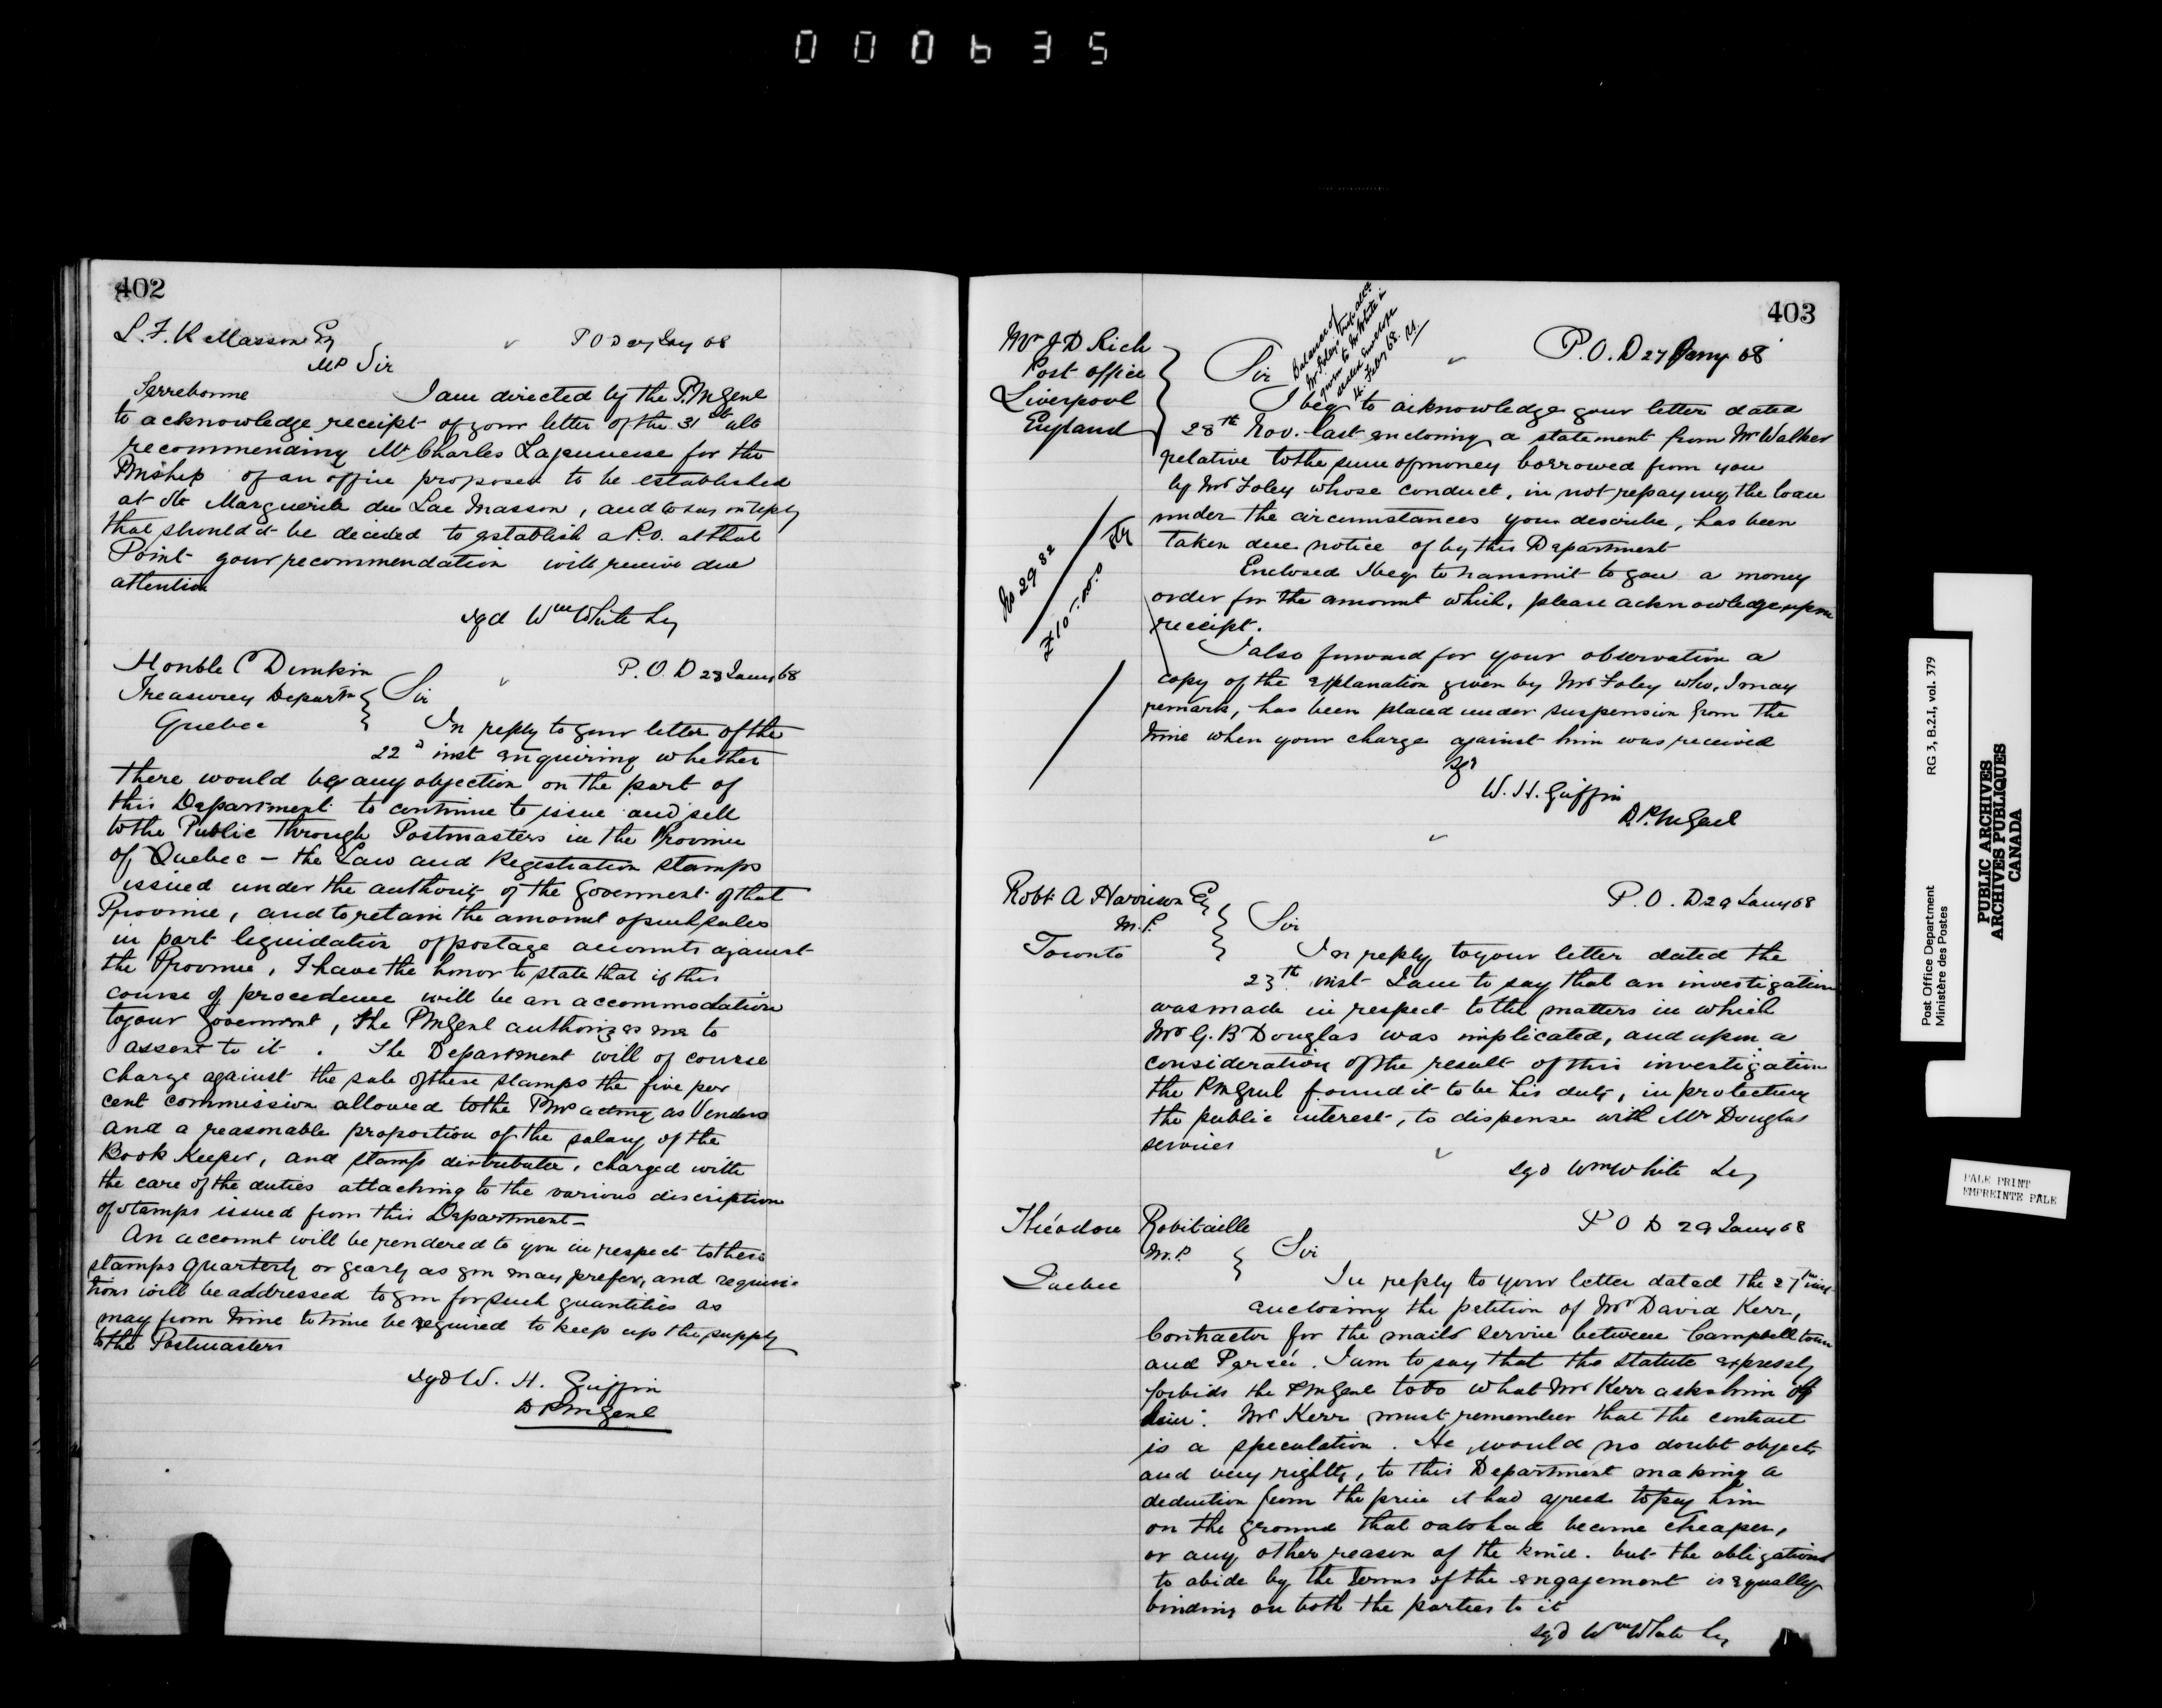 000635
402
L. F. R Masson Esq
P O D 27 Jany 68
MP Sir
Terrebonne
I am directed by the P.M Genl
to acknowledge receipt of your letter of the 31st ulto
recommending Mr Charles Lajeunesse for the
PMship of an office proposed to be established
at Ste Marguerite du Lac Masson, and to say in reply
that should it be decided to establish a P.O. at that
Point your recommendation will receive due
attention
sgd Wm White Sey
Honble C Dunkin
P. O. D 23 Jany 68
Treasurey Departm
Sir
Quebec
In reply to your letter of the
22d inst enquiring whether
there would be any objection on the part of
this Department to continue to issue and sell
to the Public through Postmasters in the Province
of Quebec — the Law and Registration stamps
issued under the authority of the Goverment of that
Province, and to retain the amount of such sales
in part liquidation of postage accounts against
the Province, I have the honor to state that if this
course of procedence will be an accommodation
to your Goverment, the PMGenl authorizes me to
assent to it . The Department will of course
charge against the sale of these stamps the five per
cent commission allowed to the PMrs acting as Vendors
and a reasonable proportion of the salary of the
Book Keeper, and stamp distributer, charged with
the care of the duties attaching to the various discription
of stamps issued from this Department —
An account will be rendered to you in respect to these
stamps quarterly or yearly as you may prefer, and requisi-
tions will be addressed to you for such quantities as
may from time to time be required to keep up the supply
to the Postmasters
sgd W. H. Griffin
D PMGenl
403
Mr J D Rich
Post office
Liverpool
England
Balance of
Mr Foley's
given to Mr White in
sealed envelope
4. Feby 68.
P. O. D 27 Jany 68
Sir
I beg to acknowledge your letter dated
28th Nov. last enclosing a statement from Mr Walker
relative to the sum of money borrowed from you
by Mr Foley whose conduct, in not repaying the loan
under the circumstances you describe, has been
taken due notice of by this Department
No 2982
Stg
£10-.0.0
Enclosed I beg to transmit to you a money
order for the amount which, please acknowledge upon
receipt.
I also forward for your observation a
copy of the explanation given by Mr Foley who, I may
remark, has been placed under suspension from the
time when your charge against him was received
Sgd
W. H. Griffin
D. P. M Genl
Robt A Harrison Esq
P. O. D 29 Jany 68
M. P.
Sir
Toronto
In reply to your letter dated the
23th inst I am to say that an investigation
was made in respect to the matters in which
Mr G. B Douglas was implicated, and upon a
consideration of the result of this investigation
the PMGenl found it to be his duty, in protecting
the public interest, to dispense with Mr Douglas
services
sgd Wm White Sey
Théodore Robitaille
P O D 29 Jany 68
M. P.
Sir
Quebec
In reply to your letter dated the 27th inst
enclosing the petition of Mr David Kerr,
Contractor for the mails service between Campbelltown
and Percée. I am to say that the statute expressly
forbids the PMGenl to do what Mr Kerr asks him of
him. Mr Kerr must remember that the contract
is a speculation. He would no doubt object,
and very rightly, to this Department making a
deduction from the price it had agreed to pay him
on the ground that oats had become cheaper,
or any other reason of the kind. but the obligations
to abide by the terms of the engagement is equally
binding on both the parties to it
sgd Wm White Sey
Post Office Department
Ministère des Postes
RG 3, B.2.I, vol. 379
PUBLIC ARCHIVES
ARCHIVES PUBLIQUES
CANADA
PALE PRINT
EMPREINTE PALE